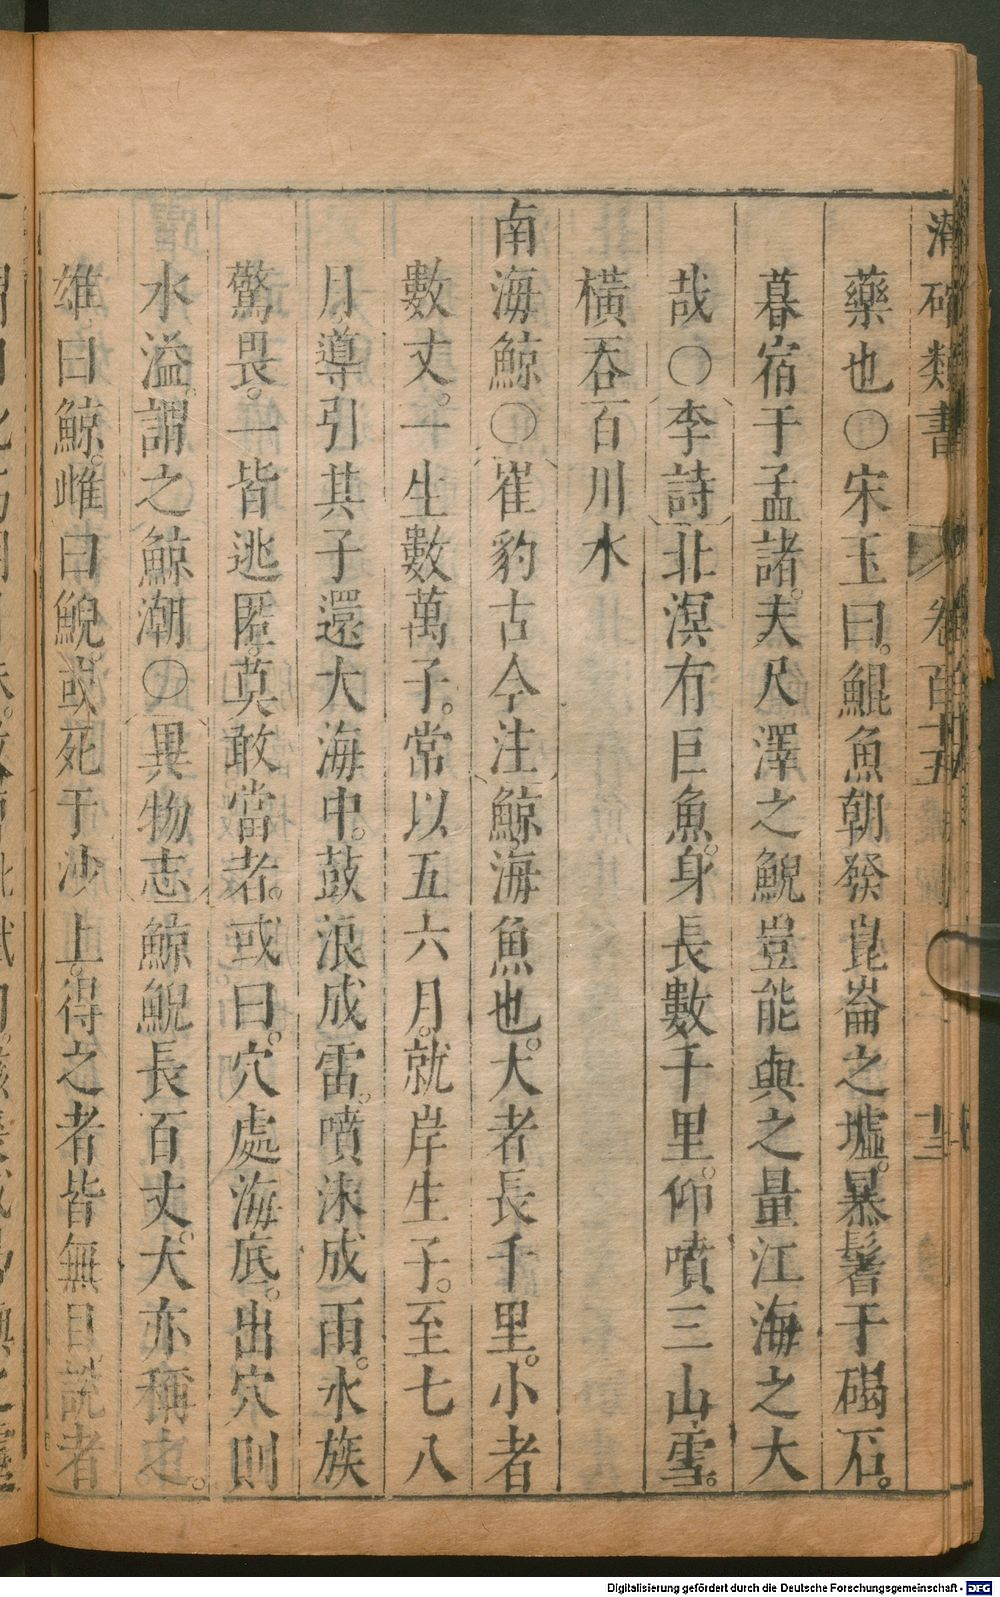 潛確類書 卷百十五 十三
藥也〇宋玉曰。鯤魚朝發崑崙之墟。暴鬐于碣石。
暮宿于孟諸。夫尺澤之鯢豈能與之量江海之大
哉〇李詩北溟有巨魚。身長數千里。仰噴三山雪。
橫吞百川水
南海鯨〇崔豹古今注鯨海魚也。大者長千里。小者
數丈。一生數萬子。常以五六月。就岸生子。至七八
月導引其子還大海中。鼓浪成雷。噴沫成雨。水族
驚畏。一皆逃匿。莫敢當者。或曰。穴處海底。出穴則
水溢。謂之鯨潮〇異物志鯨鯢長百丈。大亦稱之。
雄曰鯨。雌曰鯢。或死于沙上。得之者皆無目。說者
Digitalisierung gefördert durch die Deutsche Forschungsgemeinschaft - DFG